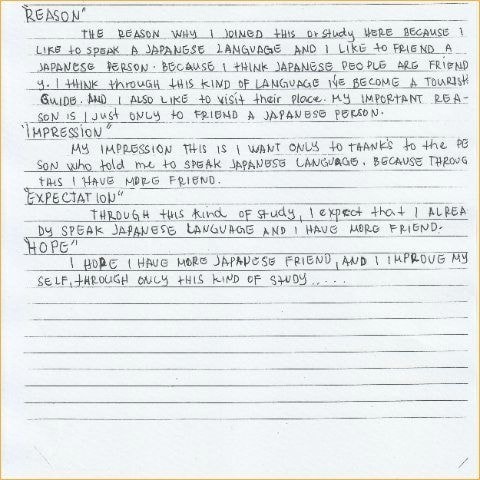 "REASON"
THE REASON WHY I JOINED THIS OR STUDY HERE BECAUSE I
LIKE TO SPEAK A JAPANESE LANGUAGE AND I LIKE TO FRIEND A
JAPANESE PERSON. BECAUSE I THINK JAPANESE PEOPLE ARE FRIEND
Y. I THINK THROUGH THIS KIND OF LANGUAGE I'VE BECOME A TOURIST
GUIDE. AND I ALSO LIKE TO VISIT THEIR PLACE. MY IMPORTANT REA-
SON IS I JUST ONLY TO FRIEND A JAPANESE PERSON.
"IMPRESSION"
MY IMPRESSION THIS IS I WANT ONLY TO THANKS TO THE PE
SON WHO TOLD ME TO SPEAK JAPANESE LANGUAGE. BECAUSE THROUG
THIS I HAVE MORE FRIEND.
"EXPECTATION"
THROUGH THIS KIND OF STUDY, I EXPECT THAT I ALREA
DY SPEAK JAPANESE LANGUAGE AND I HAVE MORE FRIEND.
"HOPE"
I HOPE I HAVE MORE JAPANESE FRIEND, AND I IMPROVE MY
SELF, THROUGH ONLY THIS KIND OF STUDY.....